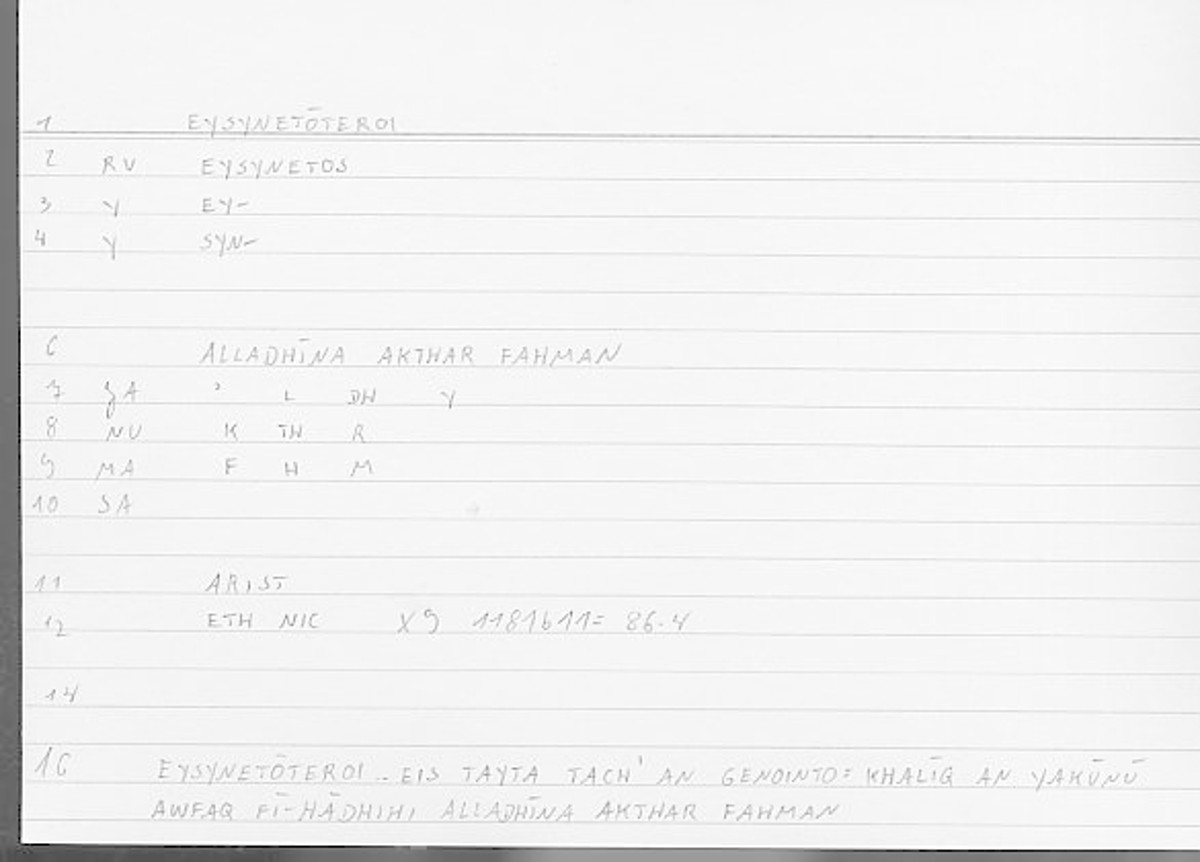 1 EYSYNETŌTEROI
2 RV EYSYNETOS
3 Y EY-
4 Y SYN-
6 ALLADHĪNA AKTHAR FAHMAN
7 ʒA ' L DH Y
8 NU K TH R
9 MA F H M
10 SA
11 ARIST
12 ETH NIC X9 1181b11= 86.4
14
16 EYSYNETŌTEROI .. EIS TAYTA TACH' AN GENOINTO= KHALĪQ AN YAKŪNŪ
AWFAQ FĪ-HĀDHIHI ALLADHĪNA AKTHAR FAHMAN